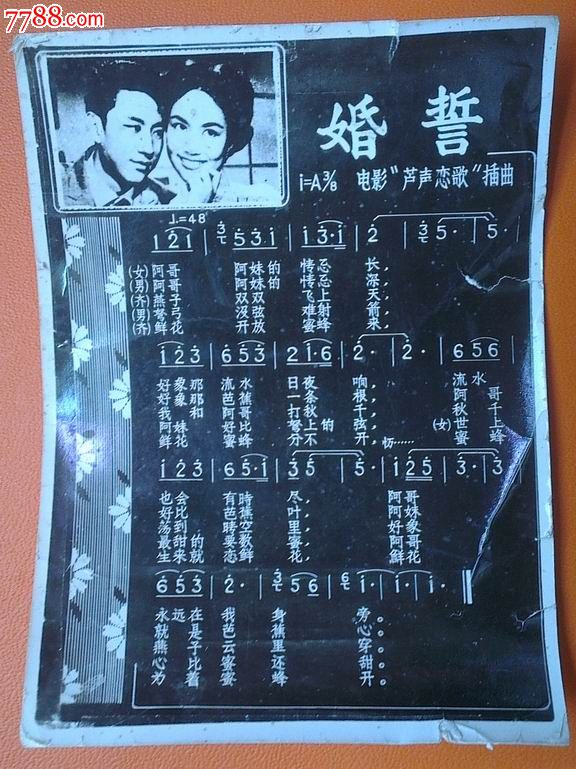 7788.com
婚誓
i=A3/8 电影"芦声恋歌"插曲
♩.=48
1 2 1 | 3 7 5 3. 1 | 1 3. 1 | 2 | 3 7 5. | 5. |
(女)阿哥 阿妹的 情意 长,
(男)阿哥 阿妹的 情意 深,
(齐)燕子 双双 飞上 天,
(男)弩弓 没弦 难射 箭,
(齐)鲜花 开放 蜜蜂 来,
1 2 3 | 6 5 3 | 2 1. 6 | 2. | 2. | 6 5 6 |
好象那 流水 日夜 响 流水
好象那 芭蕉 一条 根, 阿哥
我和 阿哥 打秋 千, 秋千
阿妹 好比 弩上 弦, (女) 世上
鲜花 蜜蜂 分不的 开, 蜜蜂
1 2 3 | 6 5. 1 | 3 5 | 5. | 1 2 5 | 3. 3 |
也会 有時 尽, 阿哥
好比 芭蕉 叶, 阿妹
荡到 時空 里, 好象
最甜的 要数 蜜, 阿哥
生来就 恋鲜 花, 鲜花
6 5 3 | 2. | 3 7 5 6 | 6 7 1. | 1. | 1. ‖
永远在 我 身 旁。
就是 芭 蕉 心。
燕子 云 里 穿。
心比 蜜 还 甜。
为着 蜜 蜂 开。